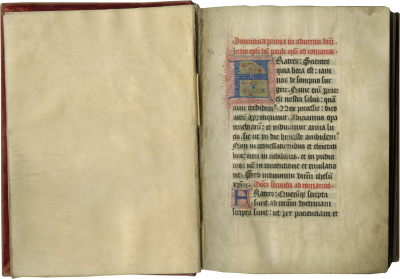 Dominica prima in adventu dni
lectio eple bti pauli apli ad romanos
Fratres: Scientes
quia hora est: iam
nos de sompno sur
gere. Nunc enī propi
or est nostra salus: quā
cum credidim9. Nox precessit: dies
autē appropinquavit. Abiciamus opa
tenebrarū: et induamur arma lu
cis. sic ut in die honeste ambulem9.
Non in comessationibus et ebrieta
tibus: non in cubilibus. et in pudici
ciis: nō in contentione et emulatio
ne. Sed induimini dnūm ihesū
xpm. Dnica secunda ad romanos.
Fratres: Quecūqz scripta
sunt ad nrām doctrinam
scripta sunt: ut per pacienciam et